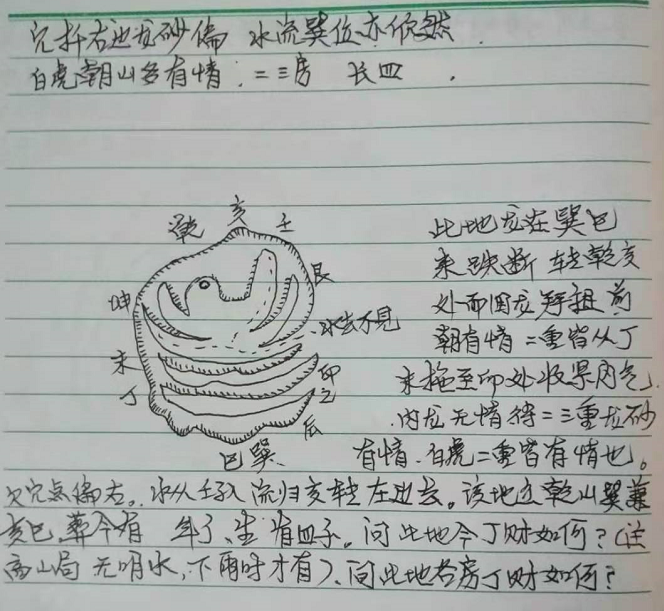 穴扦右边龙砂偏 水流巽位亦依然
白虎朝山多有情.二三房 长四.
乾 亥 壬
艮
坤
水去不见
未
丁
卯
乙
辰
巳 巽
此地龙在巽巳
来跌断 转乾亥
处而回龙 祖 前
朝有情 二重皆从丁
未拖至卯处收 内气.
.内龙无情 二三重龙砂
有情.白虎二重皆有情也。
穴点偏右。水从壬 流归亥转左边去。该地立乾山巽兼
亥巳,葬今有 年了、生有四子。问此地今丁财如何?(注
高山局 无明水,下雨时才有)、问此地各房丁财如何?